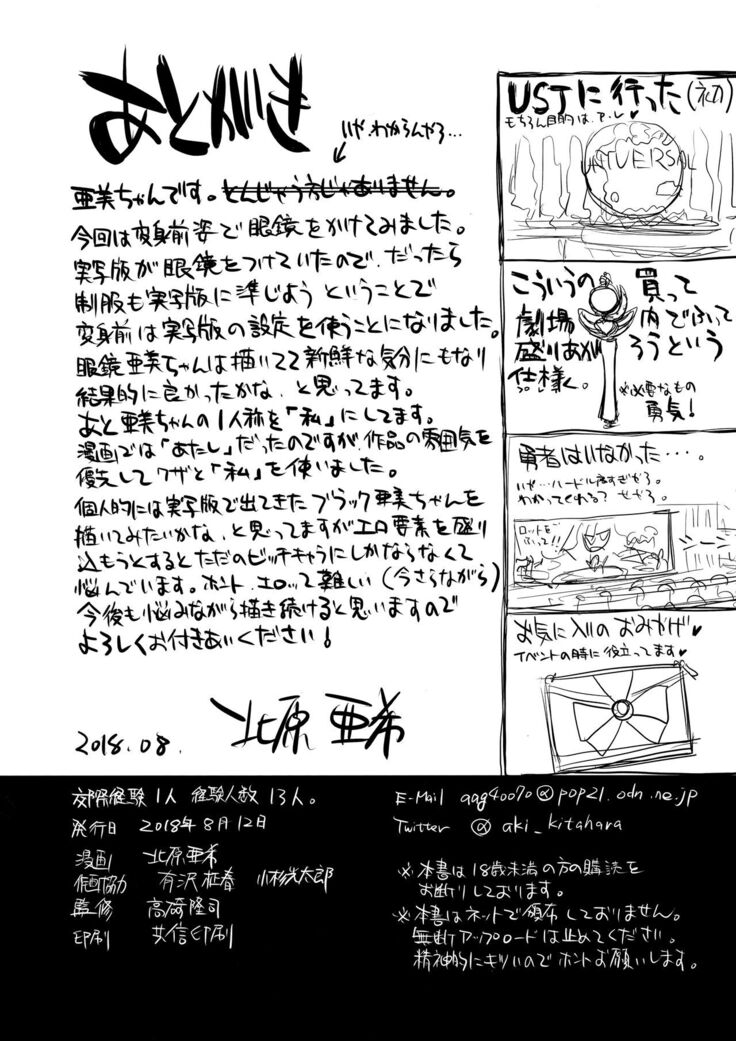 あとがき
いや、わからんやろ…
亜美ちゃんです。とんじゃう方じゃありません。
今回は変身前姿で眼鏡をかけてみました。
実写版が眼鏡をつけていたので、だったら
制服も実写版に準じよう ということで
変身前は実写版の設定を使うことになりました。
眼鏡亜美ちゃんは描いてて新鮮な気分にもなり
結果的に良かったかな、と思ってます。
あと亜美ちゃんの1人称を「私」にしてます。
漫画では「あたし」だったのですが、作品の雰囲気を
優先してワザと「私」を使いました。
個人的には実写版で出てきたブラック亜美ちゃんを
描いてみたいかな、と思ってますがエロ要素を盛り
込もうとするとただのビッチキャラにしかならなくて
悩んでいます。ホント、エロって難しい（今さらながら）
今後も悩みながら描き続けると思いますので
よろしくお付きあいください！
2018.08.
北原亜希
USJに行った（初）
もちろん目的は
UNIVERSAL
こういうの
買って
劇場
内でふって
盛りあがろうという
仕様。
※必要なもの
勇気！
勇者はいなかった…。
いや…ハードル高すぎやろ。
わかってくれる？せやろ。
ロッドを
ふって!!
お気に入りのおみやげ♥
イベントの時に役立ってます♥
交際経験1人 経験人数13人。
発行日 2018年8月12日
漫画 北原亜希
作画協力 有沢 征春 小杉光太郎
監修 高崎隆司
印刷 共信印刷
E-Mail aag40070@pop21.odn.ne.jp
Twitter @aki_kitahara
※本書は18歳未満の方の購読を
お断りしております。
※本書はネットで頒布しておりません。
無断アップロードは止めてください。
精神的にキツいのでホントお願いします。